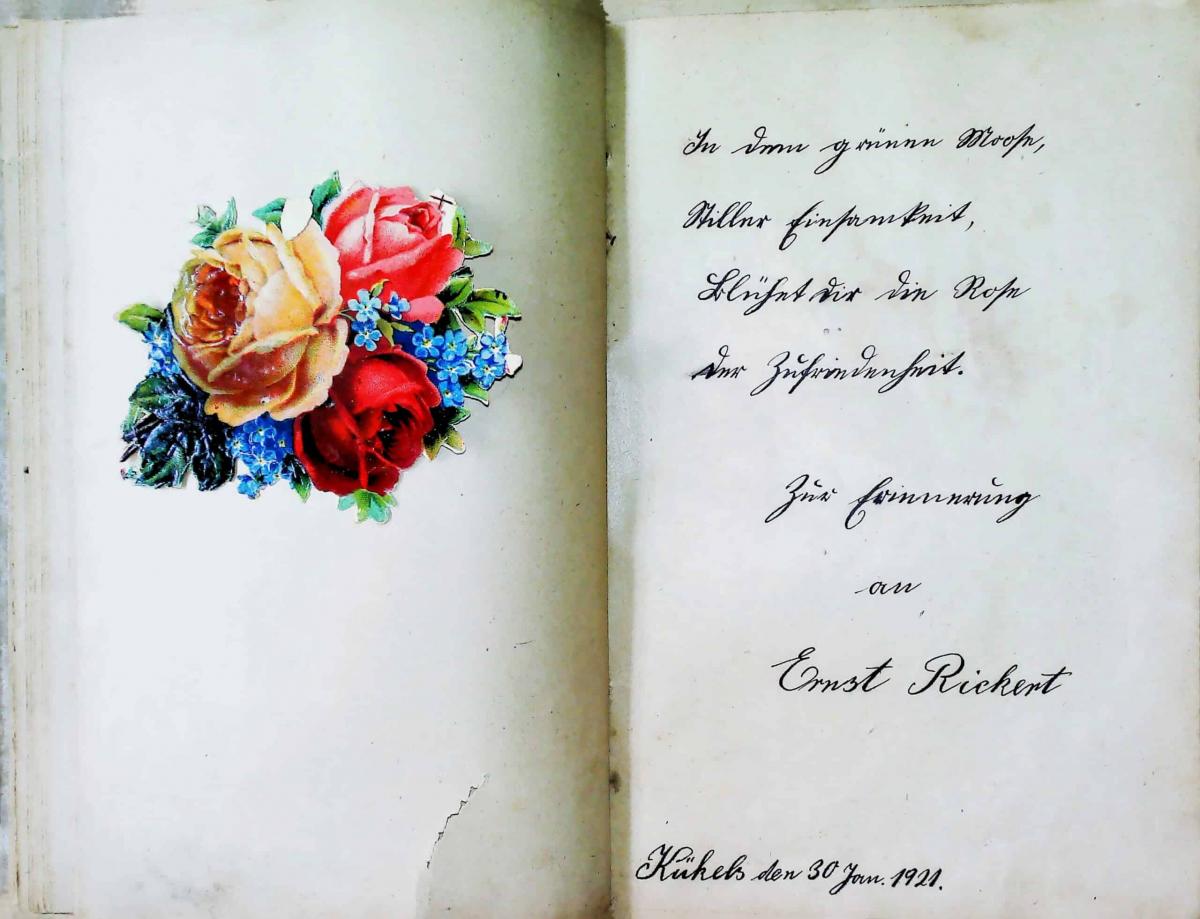 In dem grünen Moose,
Stiller Einsamkeit,
Blühet dir die Rose
der Zufriedenheit.
Zur Erinnerung
an
Ernst Rickert
Kükels den 30 Jan. 1921.